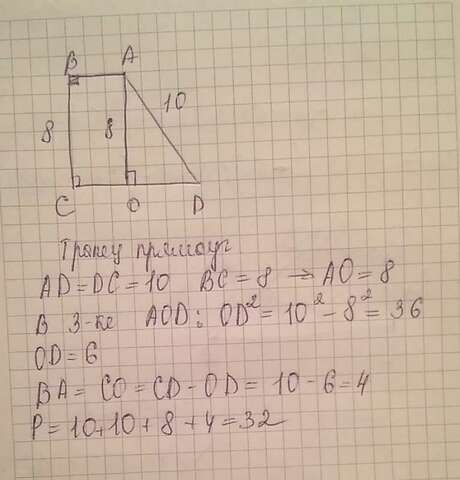 B A
10
8 8
C O D
Трапец прямоуг
AD=DC=10 BC=8 → AO=8
В 3-ке AOD: OD²=10²-8²=36
OD=6
BA=CO=CD-OD=10-6=4
P=10+10+8+4=32